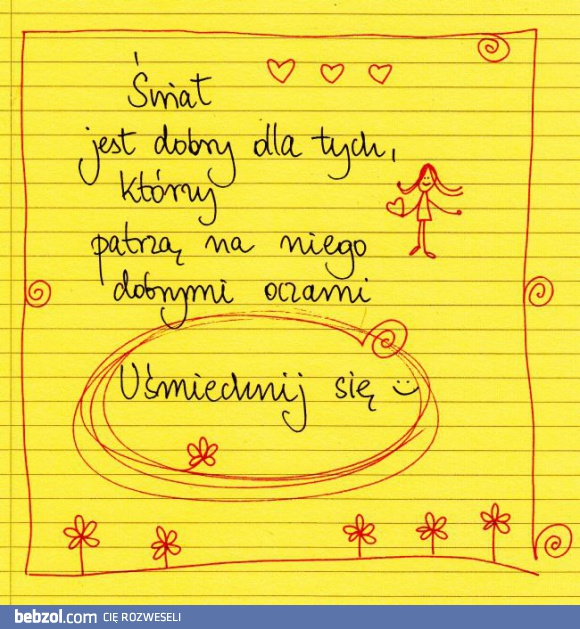 Świat
jest dobry dla tych,
którzy
patrzą na niego
dobrymi oczami
Uśmiechnij się
bebzol.com CIĘ ROZWESELI